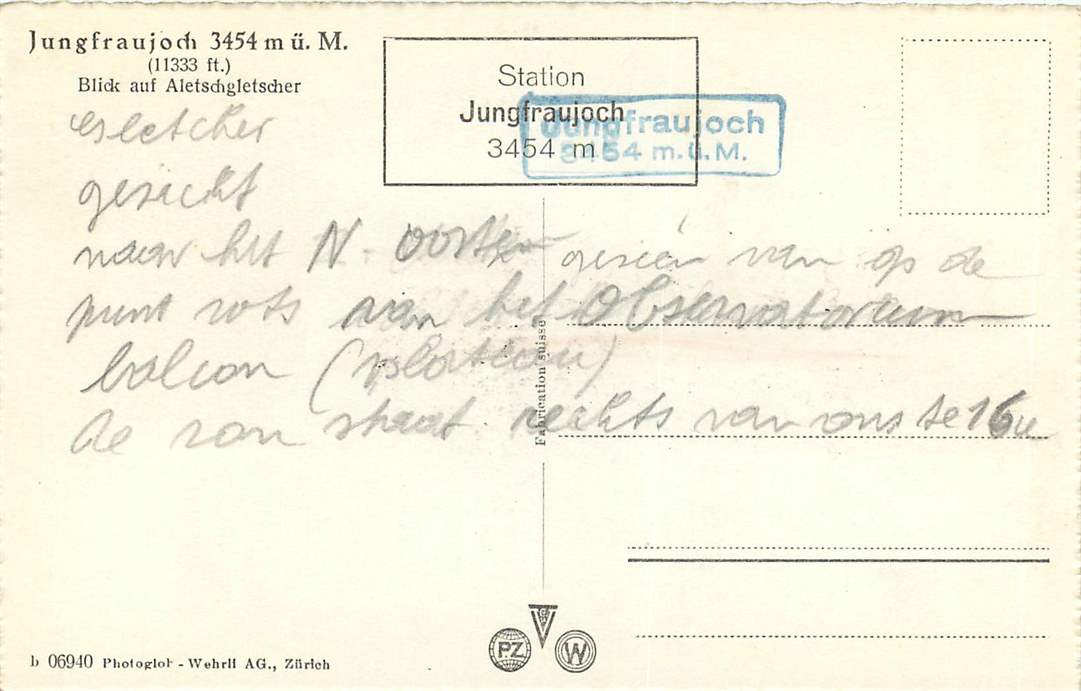 Jungfraujoch 3454 m ü. M.
(11333 ft.)
Blick auf Aletschgletscher
Station
Jungfraujoch
3454 m
Jungfraujoch
3454 m.ü.M.
Gletcher
gezicht
naar het N-oosten gezien van op de
punt rots van het Observatorium
balcon (plateau)
de zon staat rechts van ons te 16u
Fabrication suisse
PZ
W
b 06940 Photoglob-Wehrli AG., Zürich